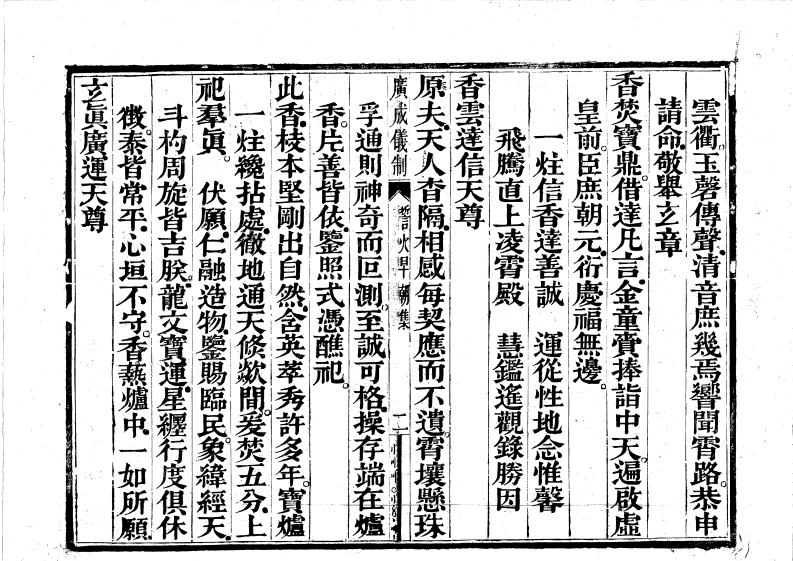 雲衢。玉磬傳聲。清音庶幾焉。響聞霄路。恭申
請命。敬舉玄章
香焚寶鼎。借達凡言。金童賫捧詣中天。遍啟虛
皇前。臣庶朝元。衍慶福無邊。
一炷信香達善誠　運從性地念惟馨
飛騰直上凌霄殿　慧鑑遙觀錄勝因
香雲達信天尊
原夫。天人杳隔。相感每契應而不遺。霄壤懸珠
廣成儀制　　朝集　二
孚通則神奇而叵測。至誠可格。操存端在爐
香。片善皆依。鑒照式憑醮祀。
此香。枝本堅剛出自然。含英萃秀許多年。寶爐
一炷纔拈處。徹地通天倏歘間。爰焚五分。上
祀羣眞。　伏願。仁融造物。鑒賜臨民。象緯經天。
斗杓周旋皆吉朕。龍文寶運。星纏行度俱休
徵。泰皆常平。心垣不守。香爇爐中。一如所願。
玄眞廣運天尊